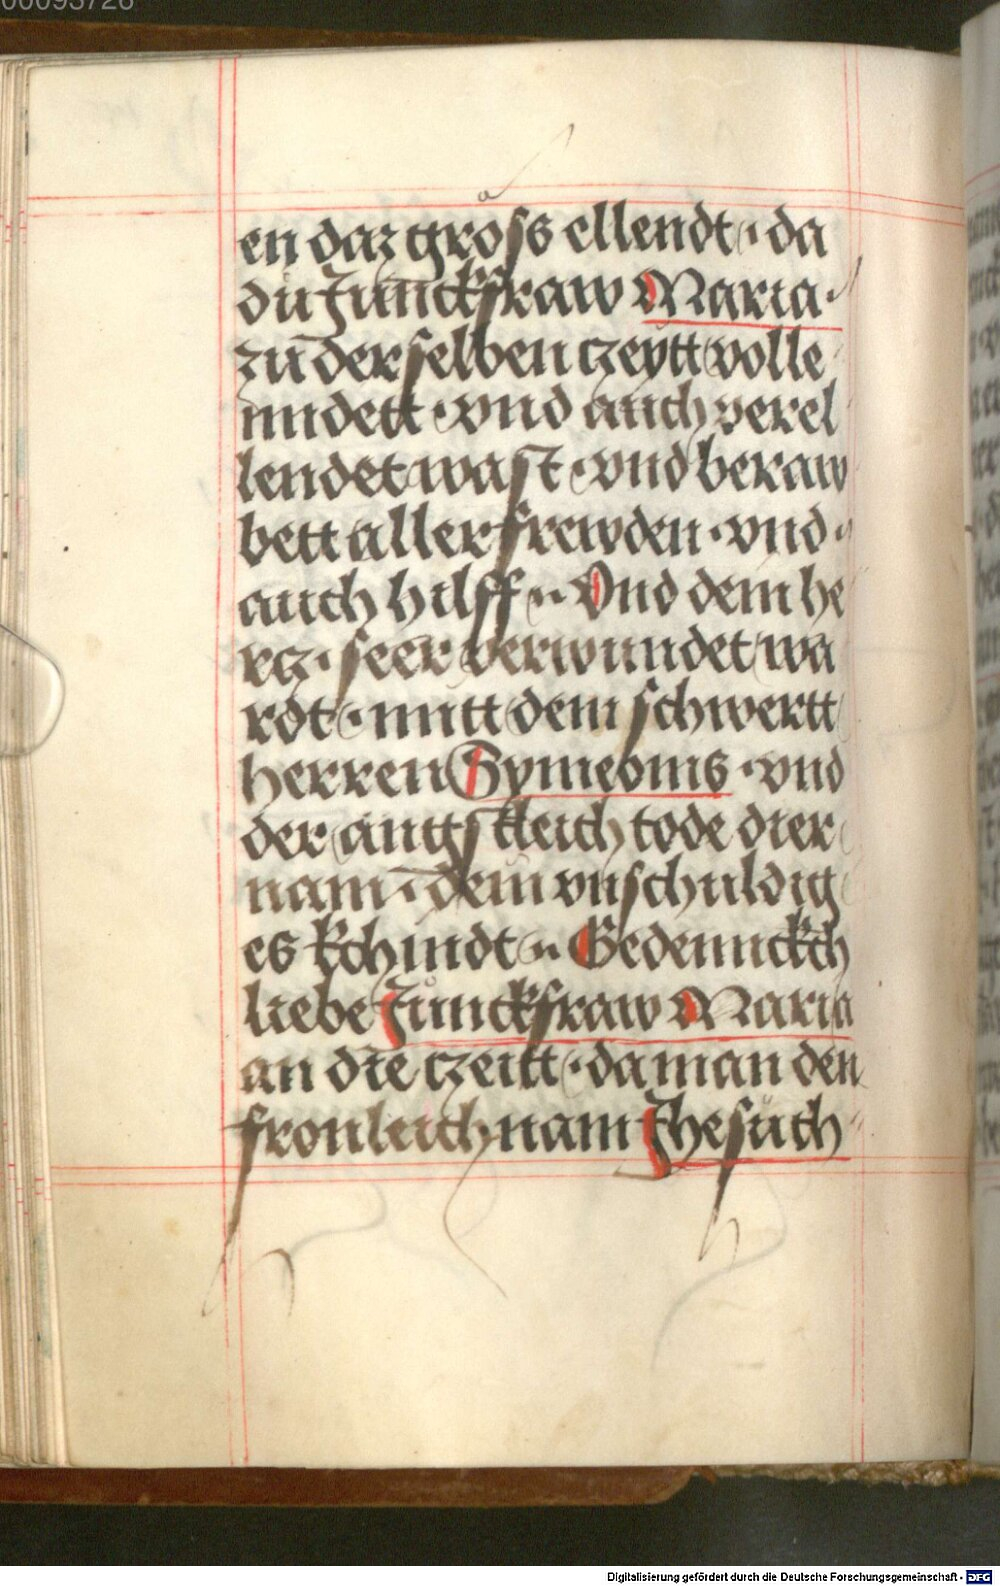 00093726
en daz gross ellendt · da
du Junckfraw Maria ·
zu der selben czeytt volle
nndett · vnd auch verel
lendet wast · vnd beraw
bett aller frewden · vnd ·
auch hilff ·· Vnd dein he
rcz · seer verwundet wa
rdt · mitt dem schwertt
herren Symeonis · vnd
der anngstleich tode dier
nam · dein vnschuldig
es kchindt ·· Gedennckch
liebe Junckfraw Maria
an die czeitt · da man den
fronleichnam Jhesuch
Digitalisierung gefördert durch die Deutsche Forschungsgemeinschaft - DFG